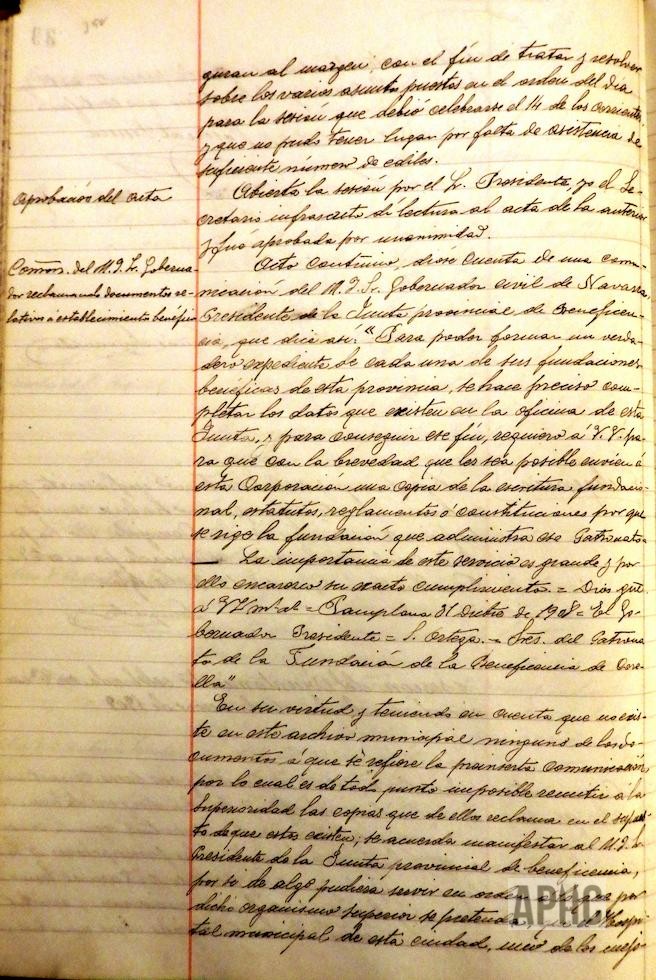 guran al margen; con el fin de tratar y resolver
sobre los varios asuntos puestos en el orden del dia
para la sesión que debió celebrarse el 14 de los corrientes
y que no pudo tener lugar por falta de asistencia de
suficiente número de ediles.
Aprobación del acta
Abierta la sesión por el Sr. Presidente, yo el Se-
cretario infrascrito dí lectura al acta de la anterior
y fué aprobada por unanimidad.
Comón. del M.I. Sr. Goberna-
dor reclamando documentos re-
lativos á establecimiento benéfico
Acto continuo, diose cuenta de una comu-
nicación del M.I. Sr. Gobernador civil de Navarra,
Presidente de la Junta provincial de Beneficen-
cia, que dice así: "Para poder formar un verda-
dero expediente de cada una de sus fundaciones
benéficas de esta provincia, se hace preciso com-
pletar los datos que existen en la oficina de esta
Junta, y para conseguir ese fin, requiero á V.V. pa-
ra que con la brevedad que les sea posible envien á
esta Corporacion una copia de la escritura fundacio-
nal, estatutos, reglamentos ó constituciones por que
se rige la fundación que administra ese Patronato
— La importancia de este servicio es grande y por
ello encarezco su exacto cumplimiento. = Dios gue.
á VV. ms. as. = Pamplona 31 Dicbre de 1908 = El Go-
bernador Presidente = S. Ortega. = Sres. del Patrona-
to de la Fundación de la Beneficencia de Core-
lla"
En su virtud y teniendo en cuenta que no exis-
te en este archivo municipal ninguno de los do-
cumentos á que se refiere la preinserta comunicación,
por lo cual es de todo punto imposible remitir á la
Superioridad las copias que de ellos reclama en el supues-
to de que estos existen; se acuerda manifestar al M.I. Sr.
Presidente de la Junta provincial de beneficencia,
por si de algo pudiera servir en orden a lo que por
dicho organismo superior se pretende, que el Hospi-
tal municipal de esta ciudad, uno de los mejo-
APHC